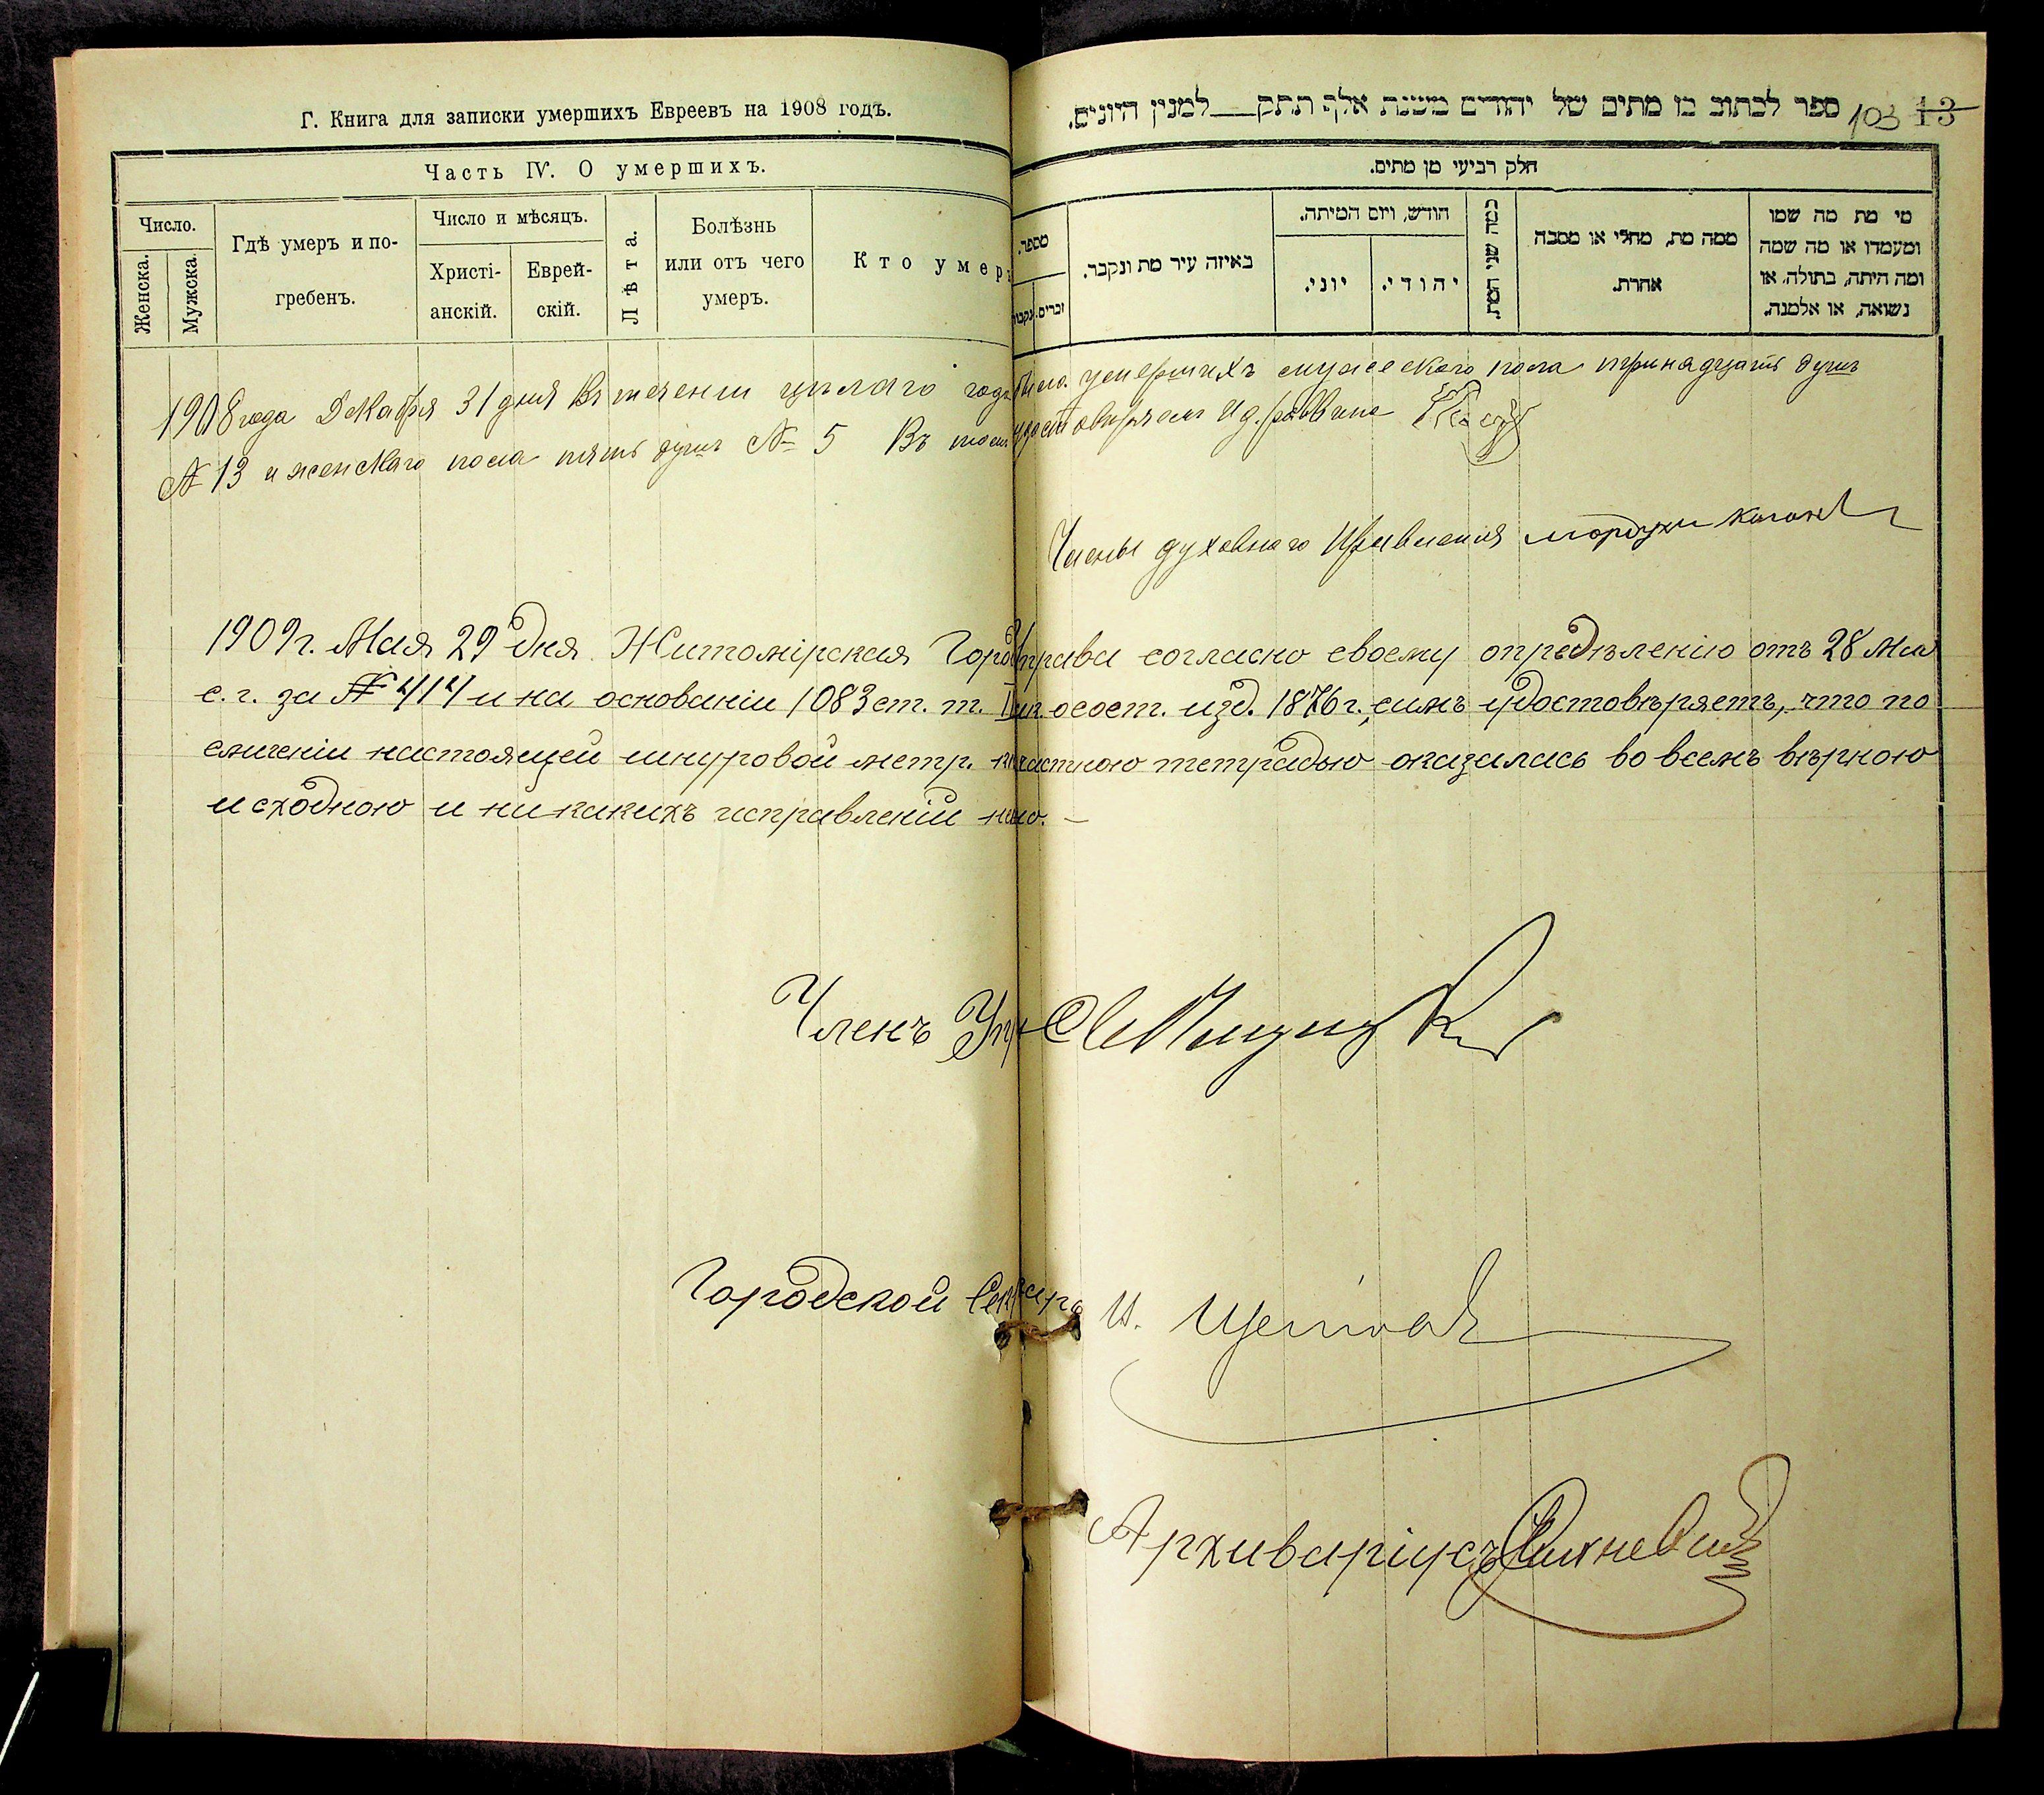 Г. Книга для записки умершихъ Евреевъ на 1908 годъ.
Часть IV. О умершихъ.
Число.
Женска.
Мужска.
Гдѣ умеръ и по-
гребенъ.
Число и мѣсяцъ.
Христі-
анскій.
Еврей-
скій.
Лѣта.
Болѣзнь
или отъ чего
умеръ.
Кто умер
ספר לכתוב בו מתים של יהודים משנת אלף תתק___למנין היונים.
103 13
חלק רביעי מן מתים.
מספר.
זכרים.
נקבות
באיזה עיר מת ונקבר.
חודש, ויום המיתה.
יוני.
יהודי.
כמה שני המת.
ממה מת, מחלי או מסבה
אחרת.
מי מת מה שמו
ומעמדו או מה שמה
ומה היתה, בתולה, או
נשואה, או אלמנה.
1908 года Декабря 31 дня Въ теченіи цѣлаго года было умершихъ мужескаго пола тринадцать душъ
№ 13 и женскаго пола пять душъ № 5 Въ томъ удостовѣряемъ И д. раввина
Члены духовнаго Правленія мордухъ коган
1909 г. Мая 29 дня Житомірская Город Управа согласно своему опредѣленію отъ 28 Мая
с. г. за № 414 и на основаніи 1083 ст. т. о сост. изд. 1876 г., симъ удостовѣряетъ, что по
сличеніи настоящей шнуровой метр. частною тетрадью оказалась во всемъ вѣрною
и сходною и никакихъ исправленій но. –
Членъ Упр
Городской Секретарь И.
Архиваріусъ